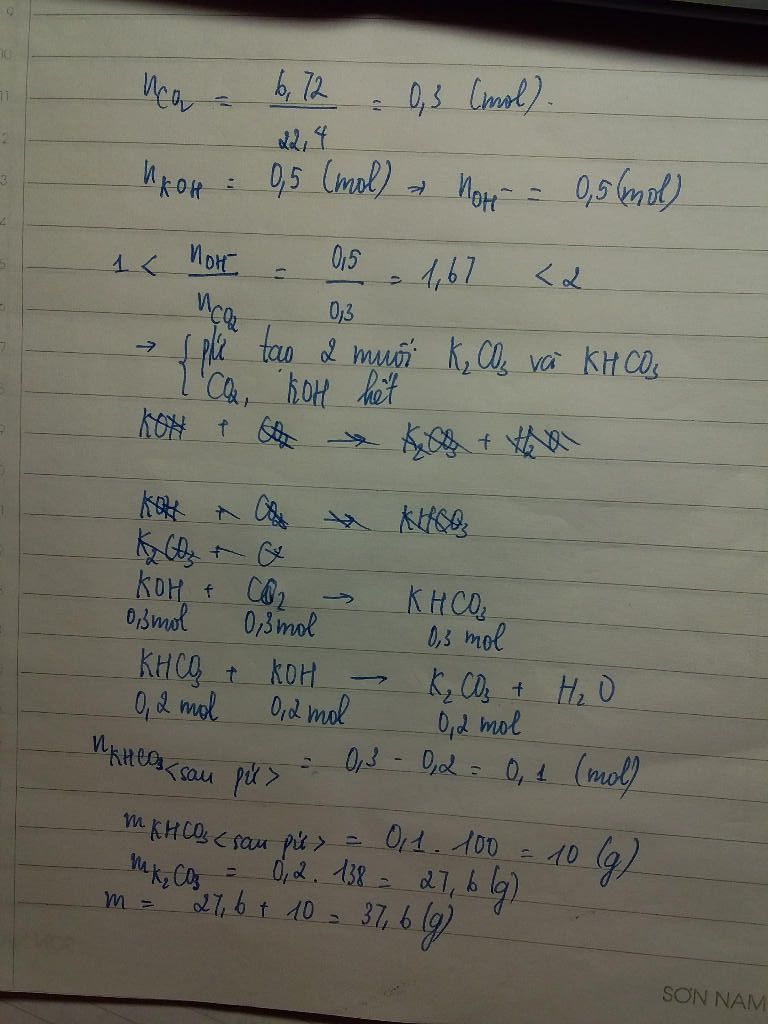 n_CO2 = 6,72/22,4 = 0,3 (mol).
n_KOH = 0,5 (mol) → n_OH⁻ = 0,5(mol)
1 < n_OH⁻/n_CO2 = 0,5/0,3 = 1,67 < 2
→ { pứ tạo 2 muối K2CO3 và KHCO3
CO2, KOH hết
KOH + CO2 → K2CO3 + H2O
KOH + CO2 → KHCO3
K2CO3 + C
KOH + CO2 → KHCO3
0,3mol 0,3mol 0,3 mol
KHCO3 + KOH → K2CO3 + H2O
0,2 mol 0,2 mol 0,2 mol
n_KHCO3 <sau pứ> = 0,3 - 0,2 = 0,1 (mol)
m_KHCO3 <sau pứ> = 0,1 . 100 = 10 (g)
m_K2CO3 = 0,2 . 138 = 27,6 (g)
m = 27,6 + 10 = 37,6 (g)
SƠN NAM